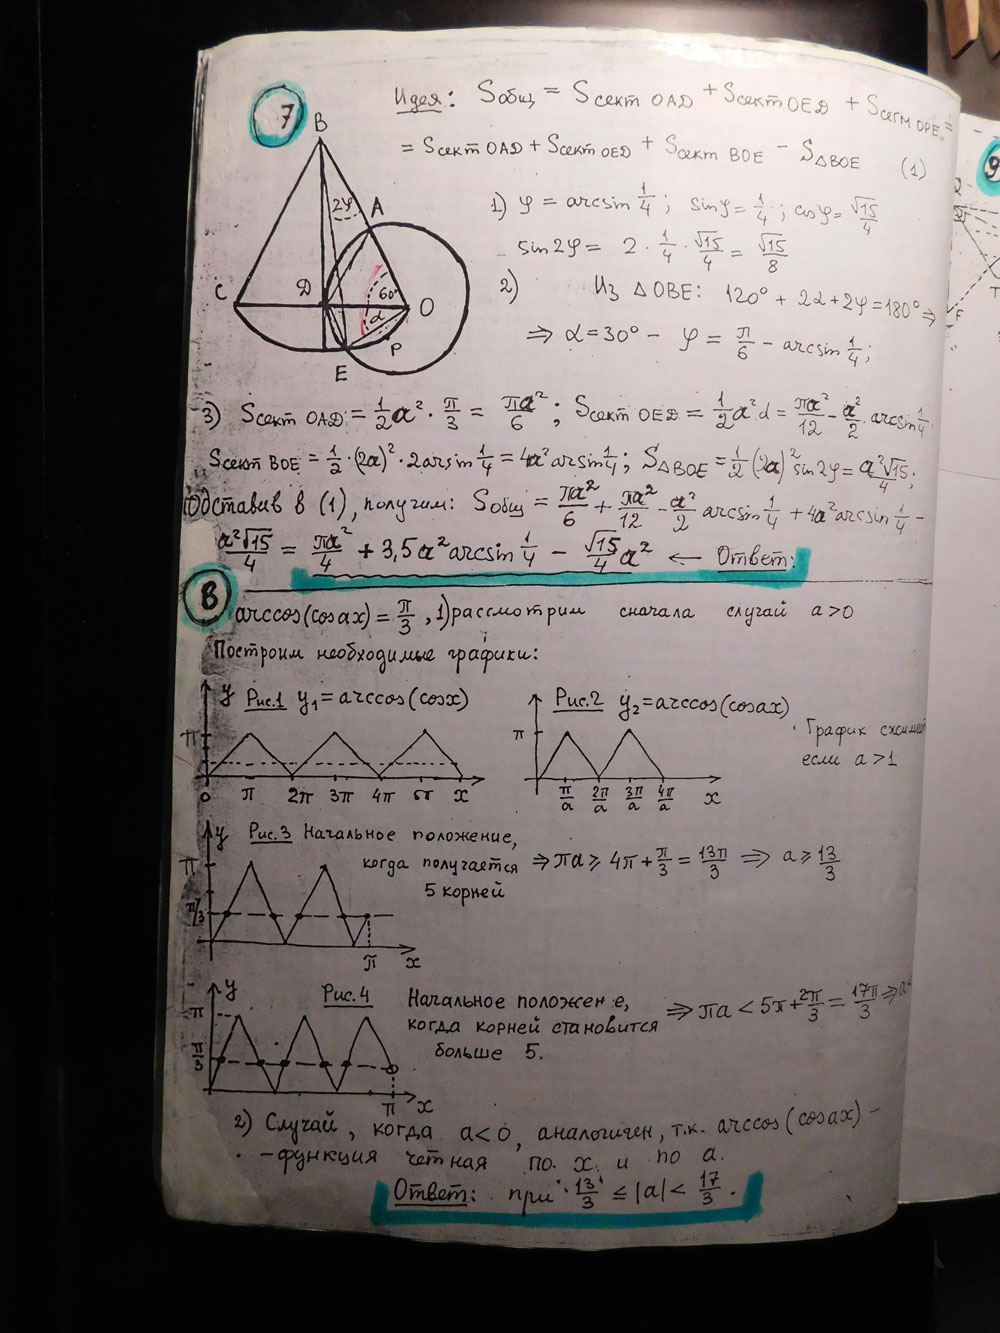 7
Идея: Sобщ = Sсект OAD + Sсект OED + Sсегм OPE =
= Sсект OAD + Sсект OED + Sсект BOE − S△BOE (1)
B
2φ
A
C
D
60°
O
α
P
E
1) φ = arcsin 1/4; sinφ = 1/4; cosφ = √15/4
sin2φ = 2 · 1/4 · √15/4 = √15/8
2) Из △OBE: 120° + 2α + 2φ = 180° ⇒
⇒ α = 30° − φ = π/6 − arcsin 1/4;
3) Sсект OAD = 1/2 a² · π/3 = πa²/6; Sсект OED = 1/2 a² α = πa²/12 − a²/2 · arcsin 1/4.
Sсект BOE = 1/2 · (2a)² · 2arsin 1/4 = 4a² arcsin 1/4; S△BOE = 1/2 (2a)² sin2φ = a²√15/4;
Подставив в (1), получим: Sобщ = πa²/6 + πa²/12 − a²/2 arcsin 1/4 + 4a² arcsin 1/4 −
a²√15/4 = πa²/4 + 3,5a² arcsin 1/4 − √15/4 a² ← Ответ:
8
arccos(cosax) = π/3, 1) рассмотрим сначала случай a>0
Построим необходимые графики:
y Рис.1 y₁ = arccos(cosx)
π
0 π 2π 3π 4π 5π x
Рис.2 y₂ = arccos(cosax)
π
π/a 2π/a 3π/a 4π/a x
График
если a>1
y Рис.3 Начальное положение,
когда получается
5 корней
⇒ πa ⩾ 4π + π/3 = 13π/3 ⇒ a ⩾ 13/3
π
π/3
π x
y Рис.4 Начальное
когда корней становится
больше 5.
⇒ πa < 5π + 2π/3 = 17π/3 ⇒ a
π
π/3
π x
2) Случай, когда a<0, аналогичен, т.к. arccos(cosax) −
− функция четная по x и по a.
Ответ: при 13/3 ⩽ |a| < 17/3.
9
T
F